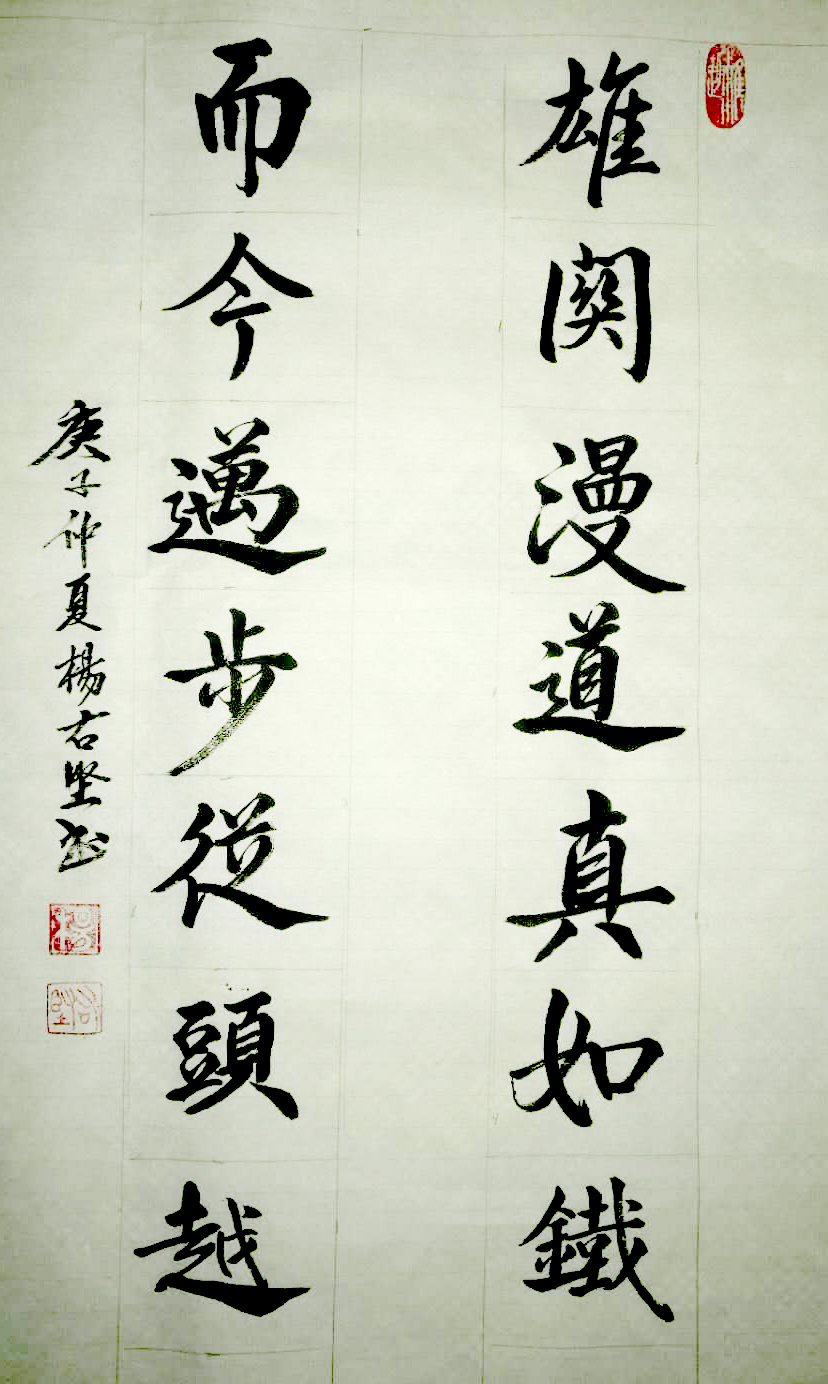 雄関漫道真如鐵
而今邁步従頭越
庚子仲夏楊右堅书